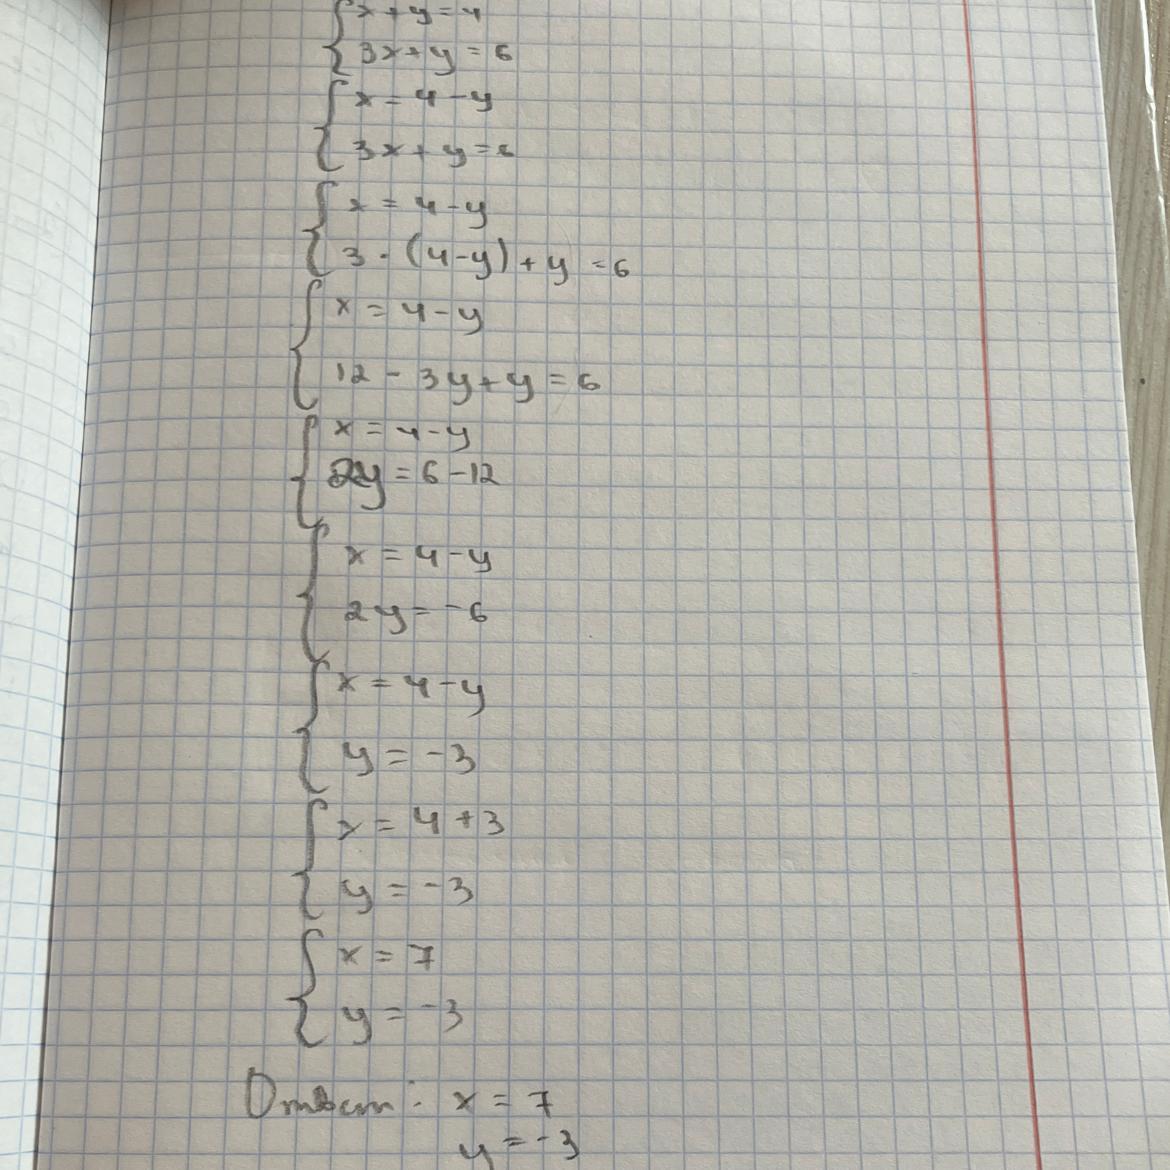 x+y=4
3x+y=6
x=4-y
3x+y=6
x=4-y
3·(4-y)+y=6
x=4-y
12-3y+y=6
x=4-y
2y=6-12
x=4-y
2y=-6
x=4-y
y=-3
x=4+3
y=-3
x=7
y=-3
Ответ: x=7
y=-3